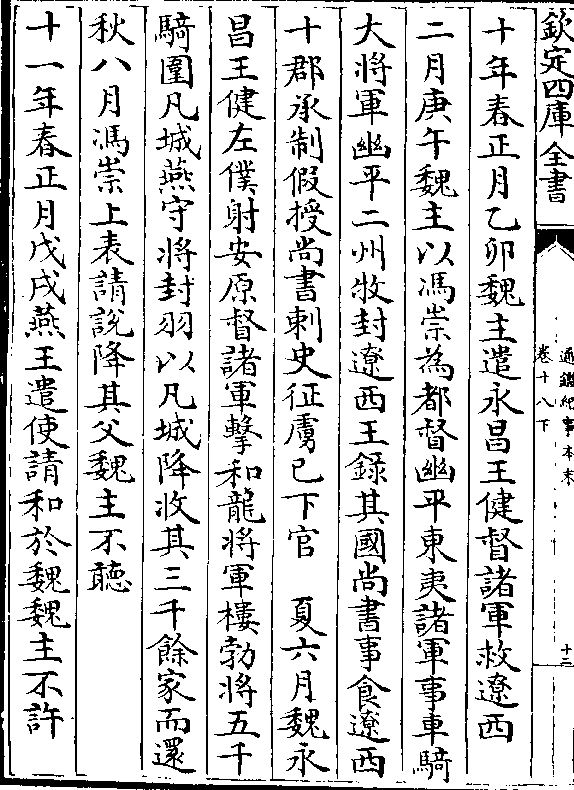 欽定四庫全書
通鑑紀事本末
卷十八下
十二
十年春正月乙卯魏主遣永昌王健督諸軍救遼西
二月庚午魏主以馮崇為都督幽平東夷諸軍事車騎
大將軍幽平二州牧封遼西王録其國尚書事食遼西
十郡承制假授尚書刺史征虜已下官　夏六月魏永
昌王健左僕射安原督諸軍擊和龍將軍樓勃將五千
騎圍凡城燕守將封羽以凡城降收其三千餘家而還
秋八月馮崇上表請說降其父魏主不聽
十一年春正月戊戌燕王遣使請和於魏魏主不許